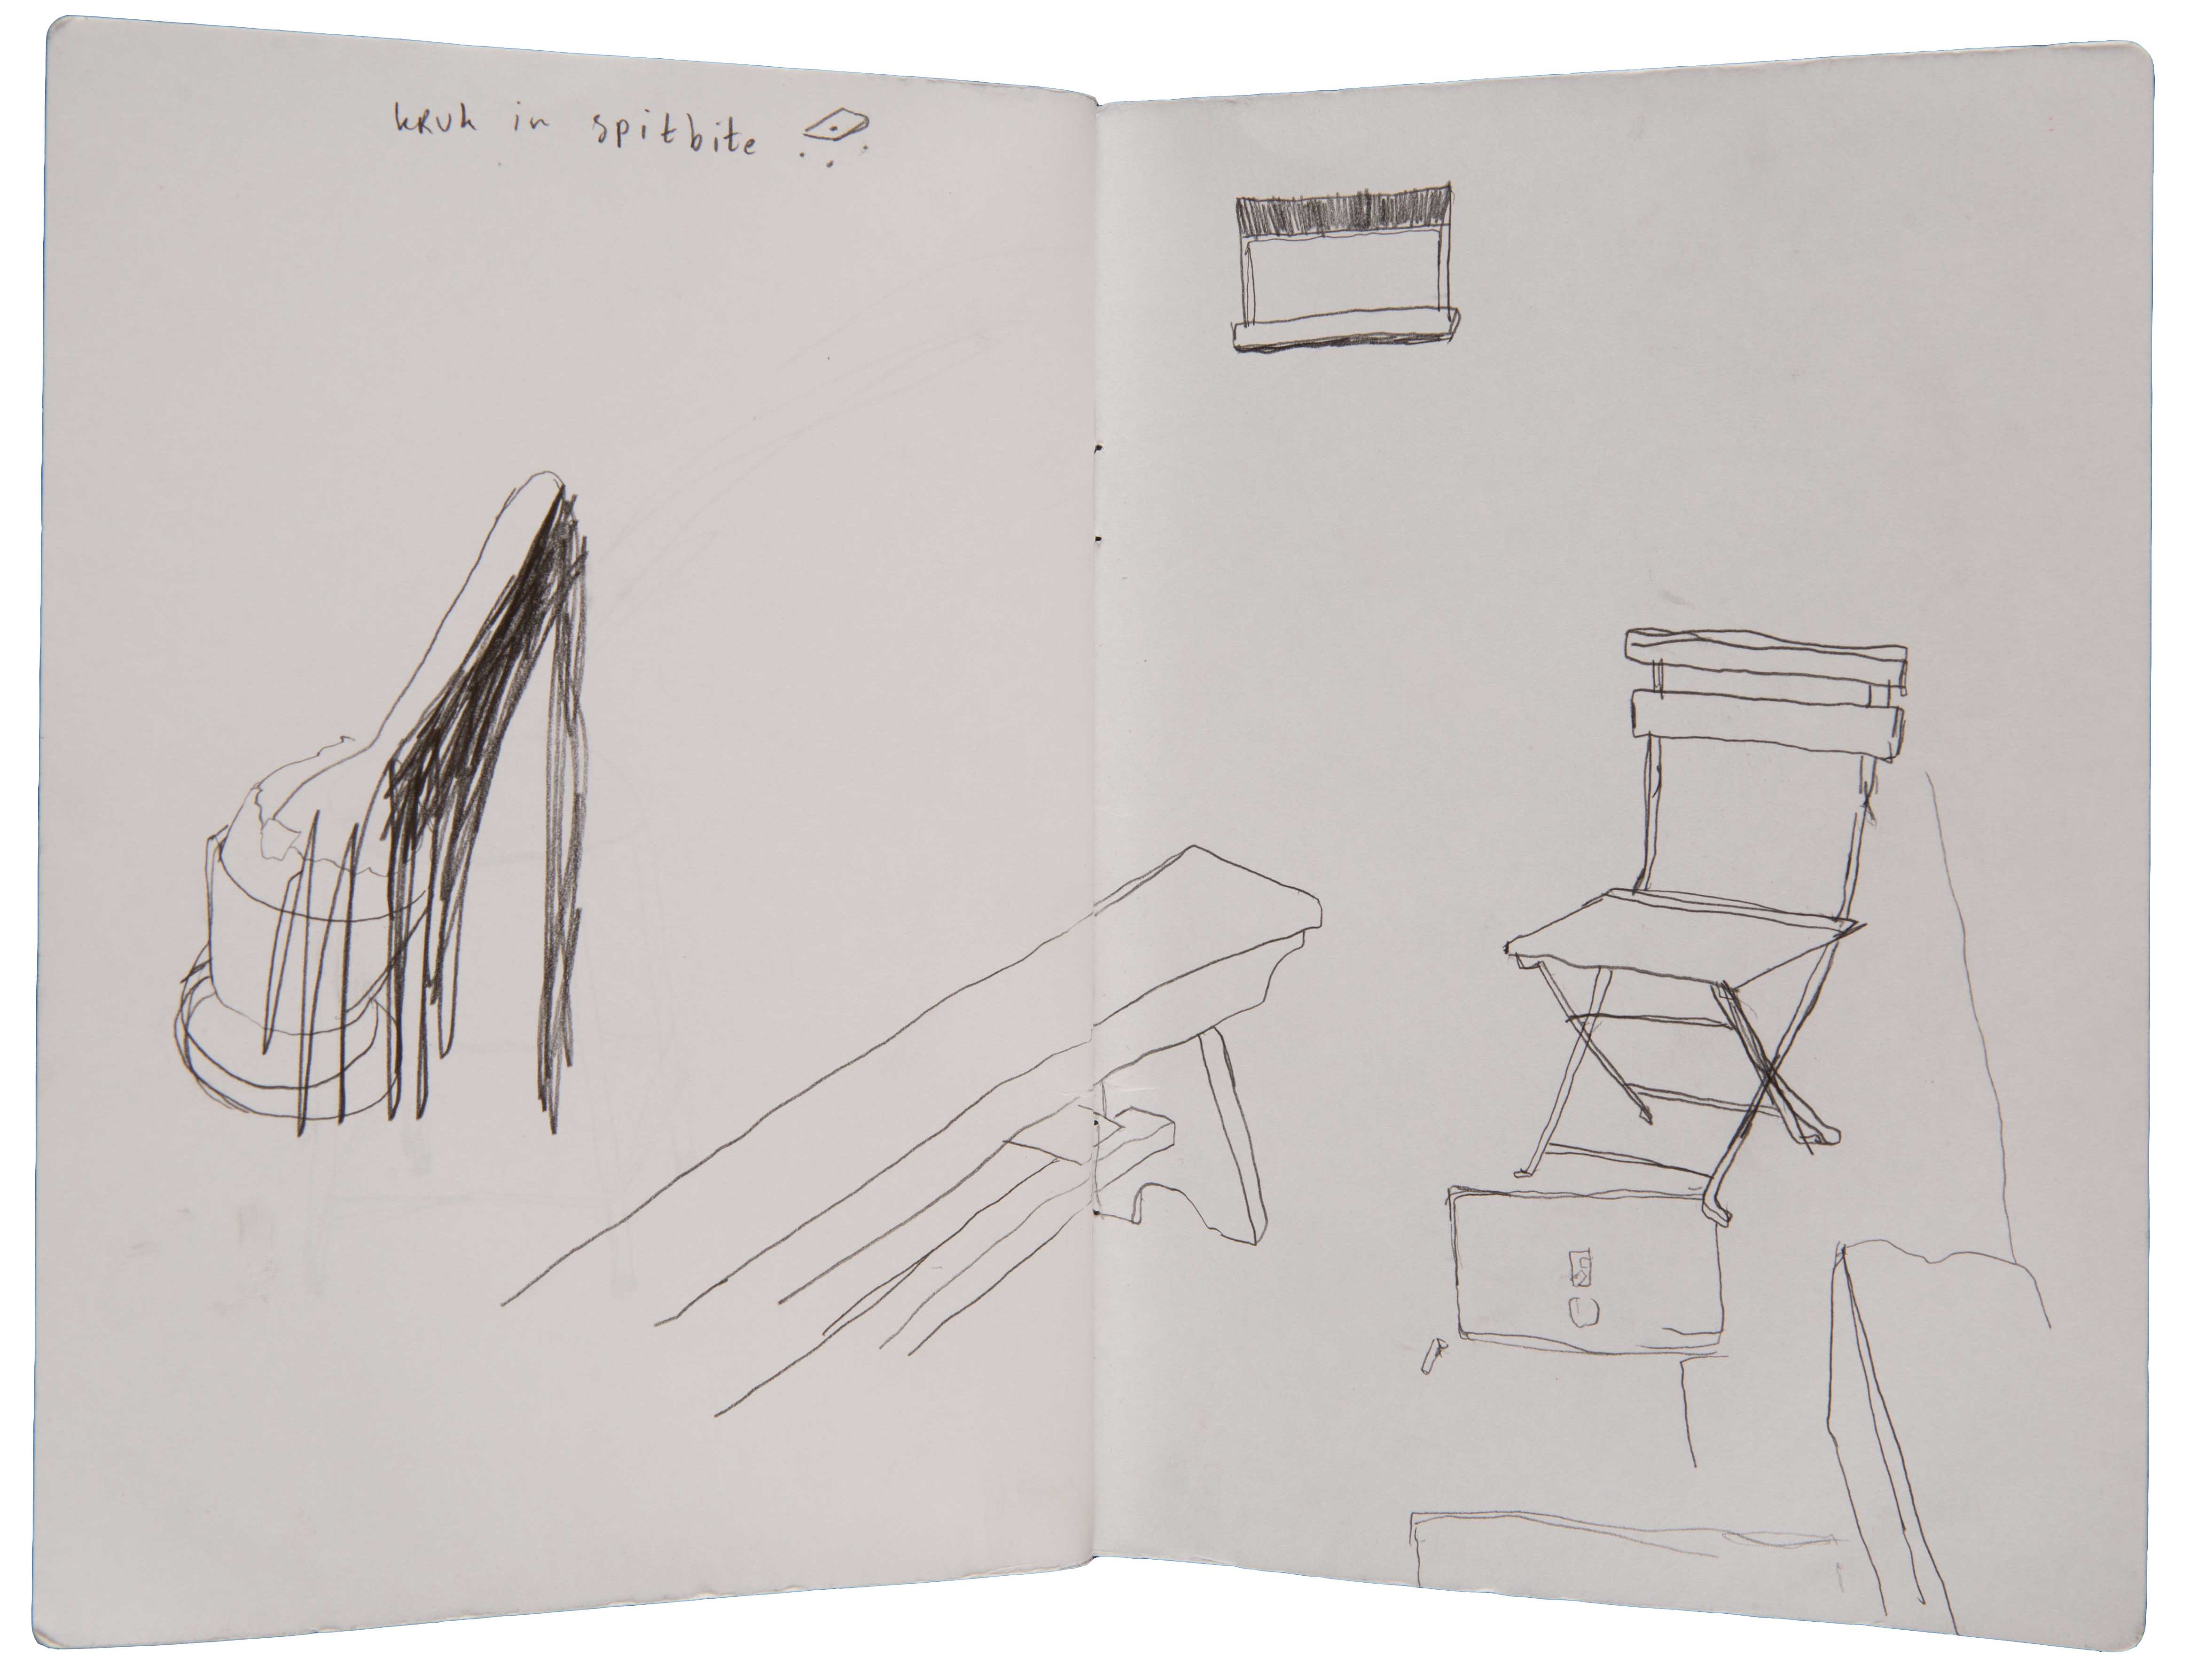 kruk in spitbite